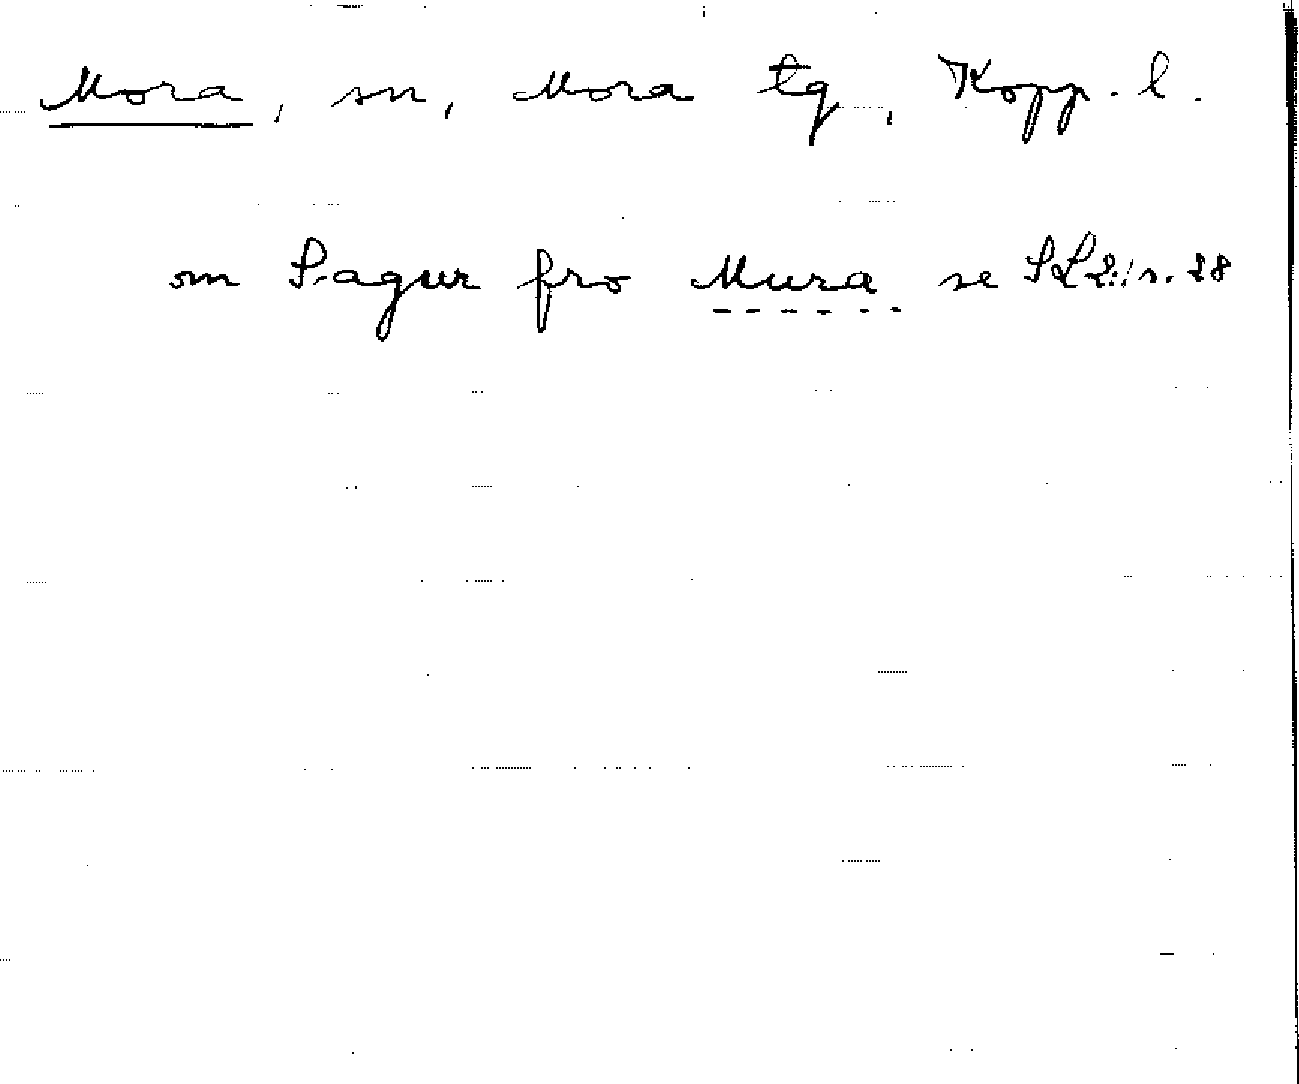 Mora, sn, Mora tg, Kopp. l.
om Sagur fro Mura se SL 2:1 s. 28